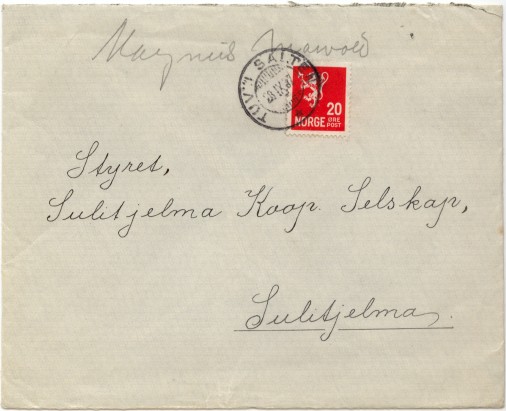 Magnus
TUV I SALTEN
20
NORGE ØRE
POST
Styret,
Sulitjelma Koop. Selskap,
Sulitjelma.